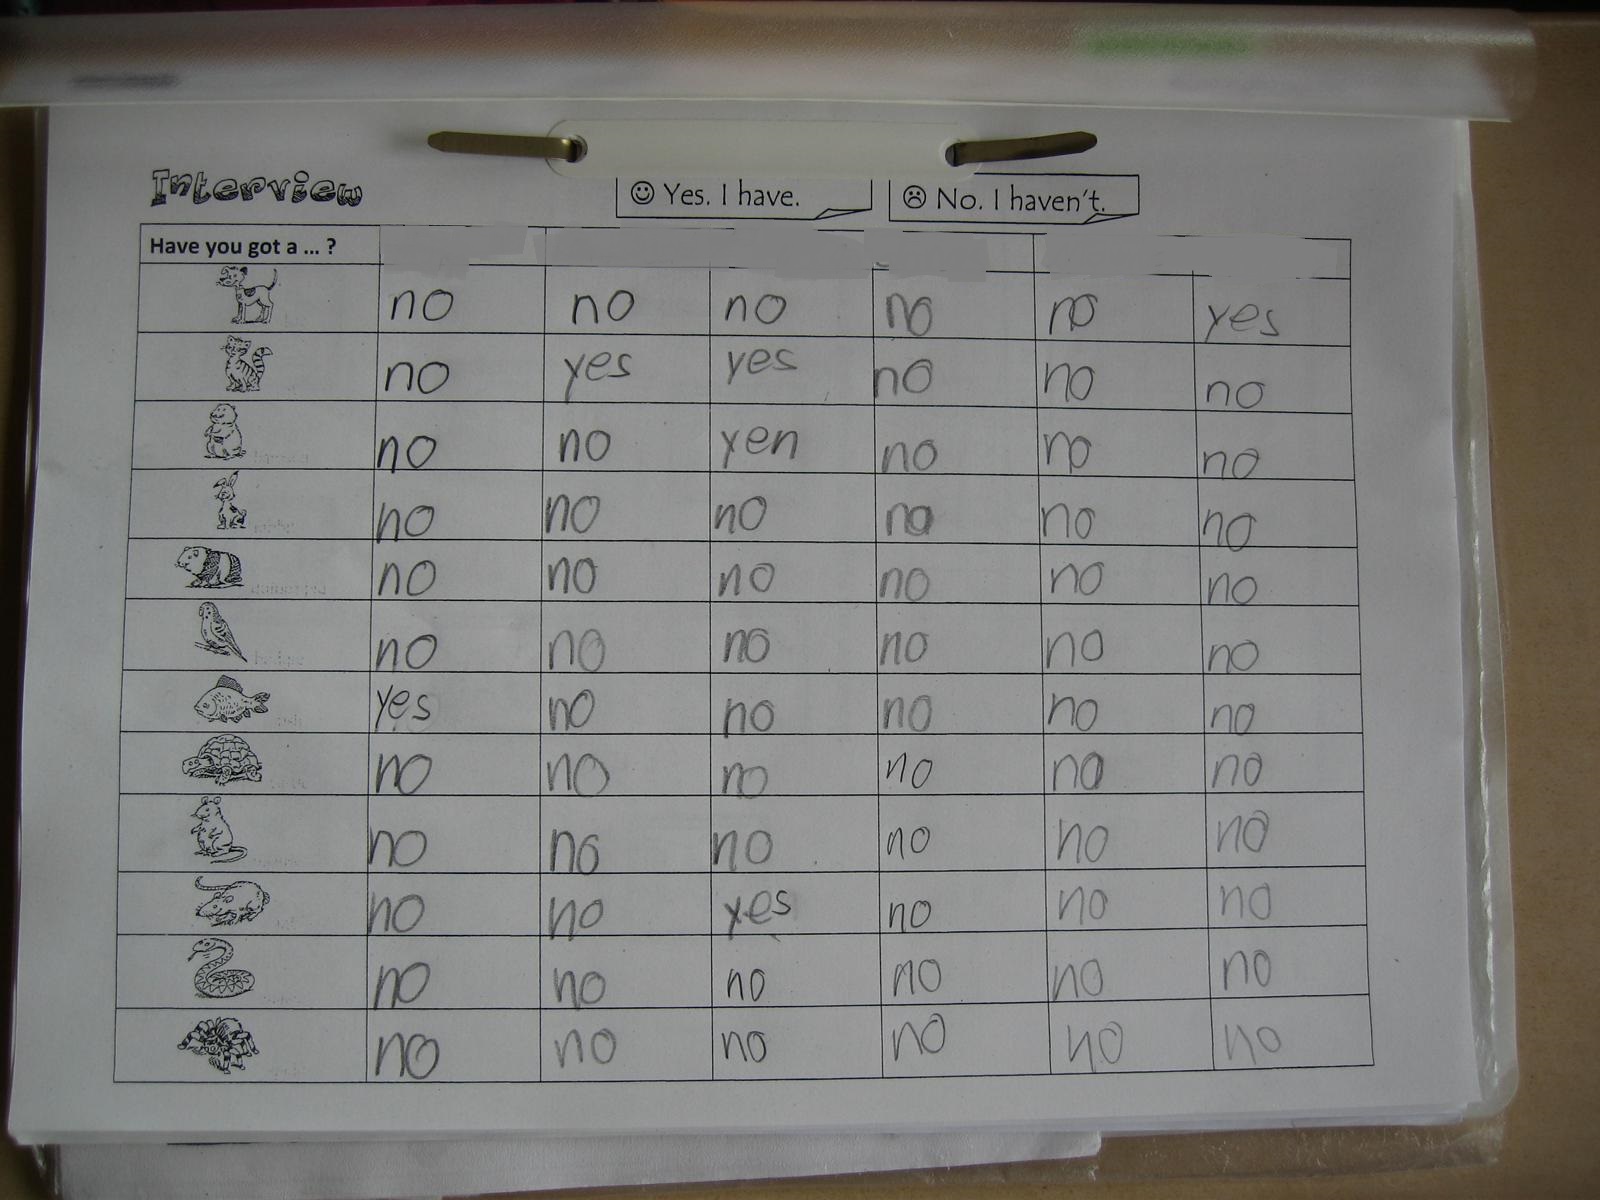 Interview
☺ Yes. I have.
☹ No. I haven't.
Have you got a ... ?
no no no no no yes
no yes yes no no no
no no yen no no no
no no no no no no
no no no no no no
no no no no no no
yes no no no no no
no no no no no no
no no no no no no
no no yes no no no
no no no no no no
no no no no no no